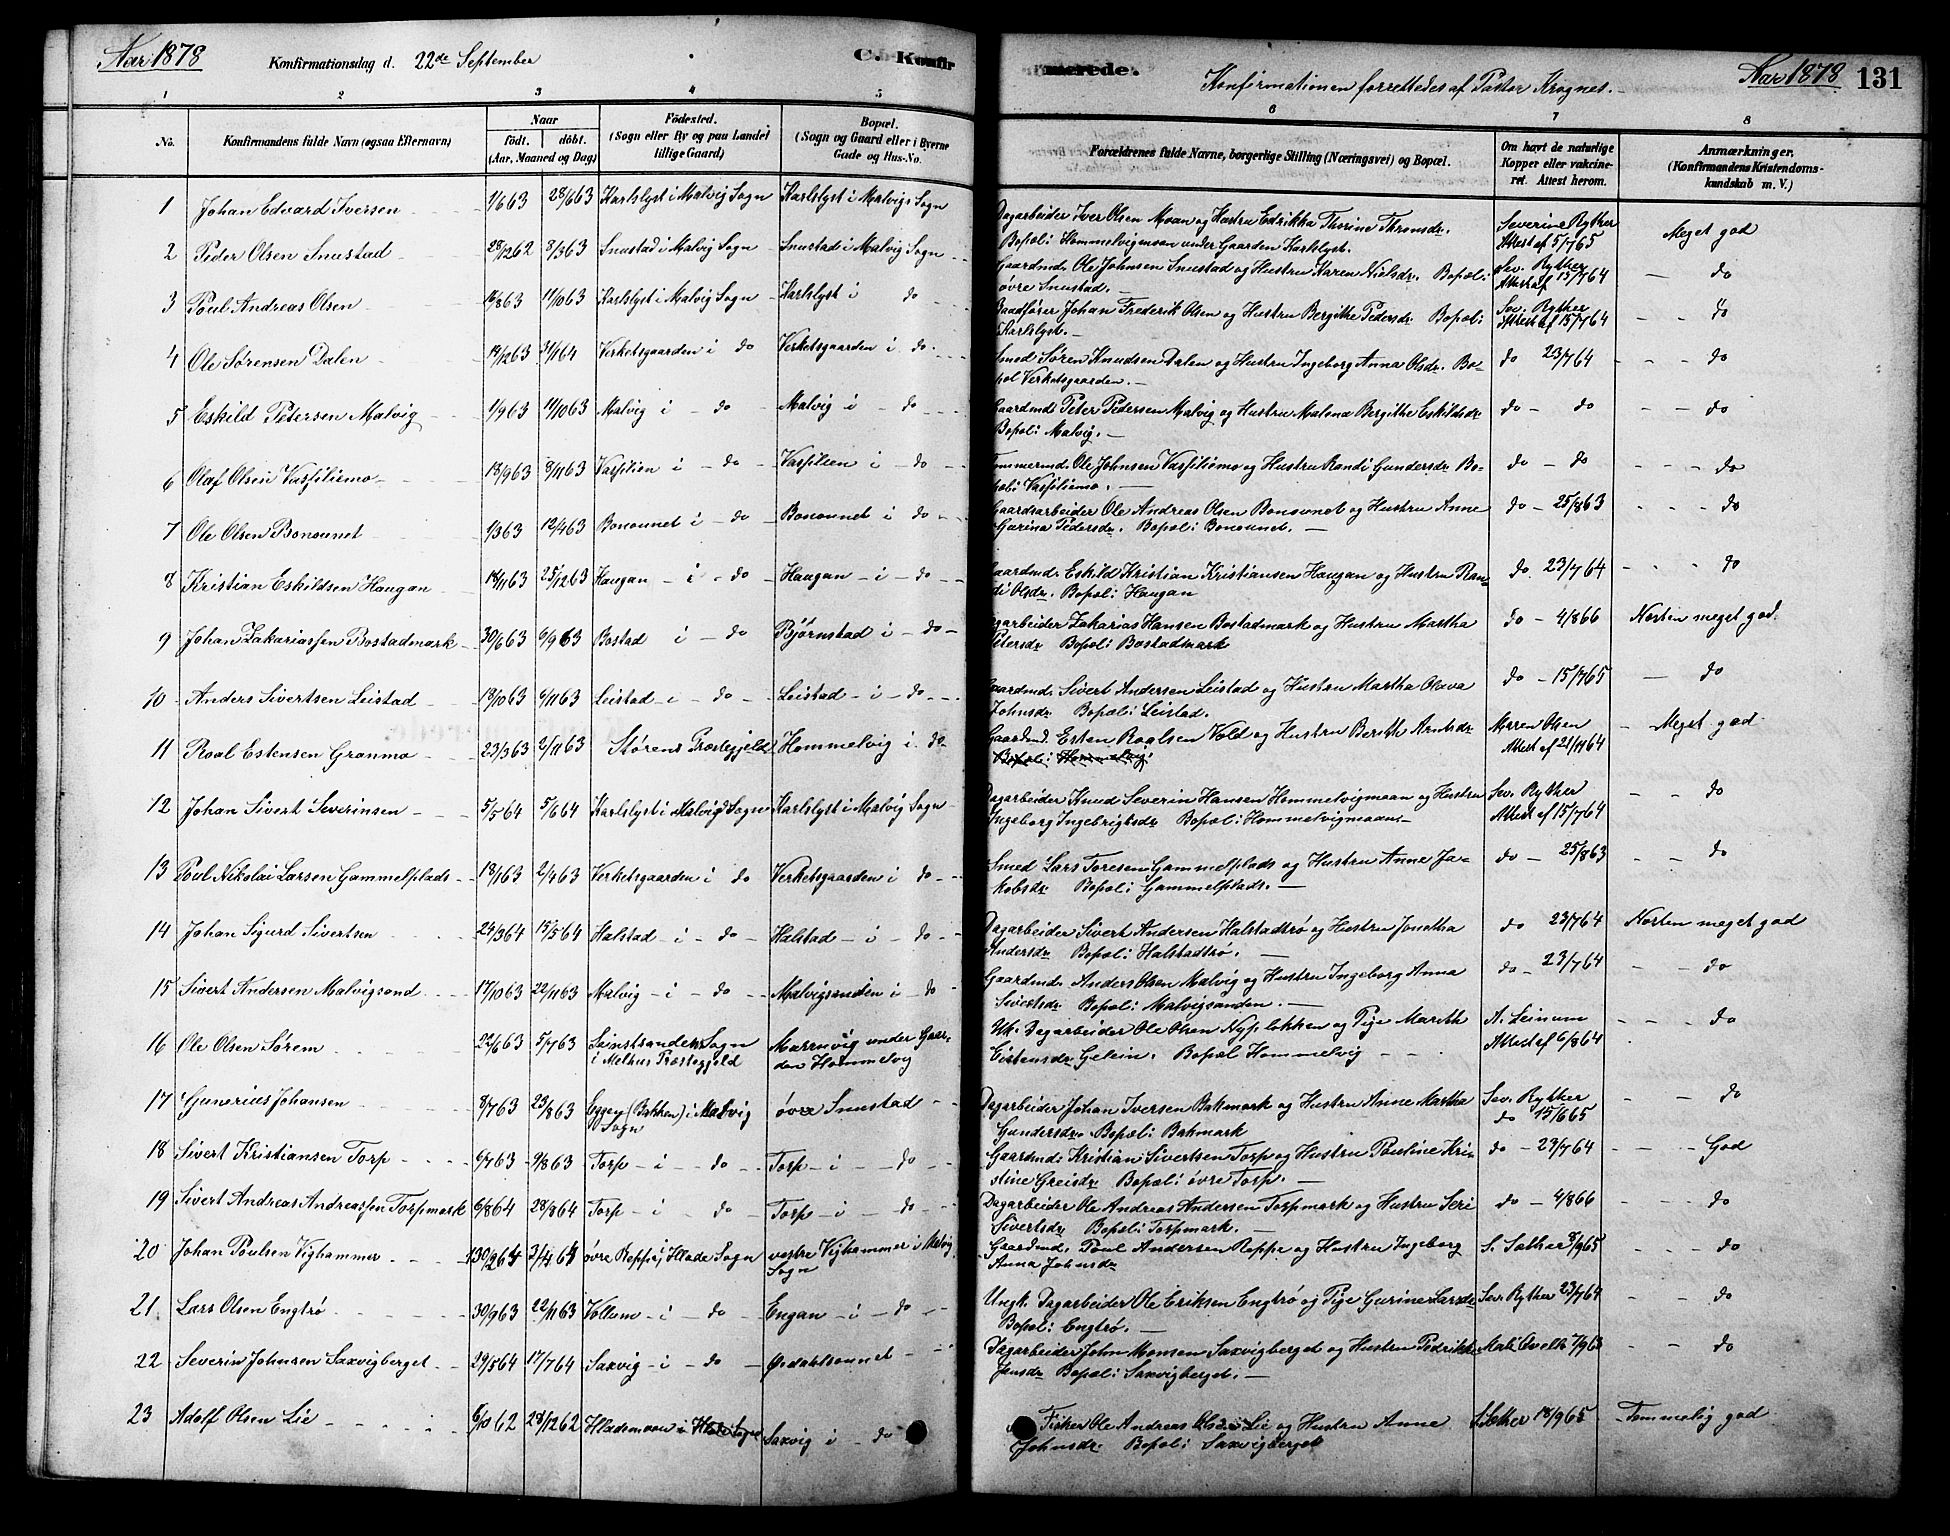 Aar 1878
Konfirmationsdag d. 22de September
C. Konfir
merede.
Konfirmationen forrettedes af Pastor Krognes.
Aar 1878
131
1 2 3 4 5 6 7 8
No.
Konfirmandens fulde Navn (ogsaa Efternavn)
Naar
født. døbt.
(Aar, Maaned og Dag)
Fødested.
(Sogn eller By og paa Landet
tillige Gaard)
Bopæl.
(Sogn og Gaard eller i Byerne
Gade og Hus-No.
Forældrenes fulde Navne, borgerlige Stilling (Næringsvei) og Bopæl.
Om havt de naturlige
Kopper eller vakcine-
ret. Attest herom.
Anmærkninger.
(Konfirmandens Kristendoms-
kundskab m. V.)
1 Johan Edvard Iversen 1/6 63 28/6 63 Karlslyst i Malvig Sogn Karlslyst i Malvigs Sogn Dagarbeider Iver Olsen Moan og Hustru Edrikka Thorine Thomsdr. Severine Ryther Meget god
Bopæl: Hommelvigmoen under Gaarden Karlslyst. Attest af 5/7 65
2 Peder Olsen Snustad 28/12 62 8/3 63 Snustad i Malvig Sogn Snustad i Malvig Sogn Gaardmd. Ole Johnsen Snustad og Hustru Karen Nielsdr. Bopæl: Sev. Ryther — do
øvre Snustad. Attest af 15/7 64
3 Poul Andreas Olsen 16/8 63 11/10 63 Karlslyst i Malvig Sogn Karlslyst i do Baadfører Johan Frederik Olsen og Hustru Bergithe Pedersdr. Bopæl: Sev. Ryther - - do
Karlslyst. Attest af 15/7 64
4 Ole Sørensen Dalen 19/12 63 31/1 64 Verketsgaarden i do Verketsgaarden i do Smed Søren Knudsen Dalen og Hustru Ingeborg Anna Olsdr. Bo- do 23/7 64 - - do
pæl Verketsgaarden.
5 Eskild Petersen Malvig 1/9 63 11/10 63 Malvig i - do Malvig i - do Gaardmd. Peter Pedersen Malvig og Hustru Malena Bergithe Eskildsdr do - do - - do
Bopæl: Malvig.
6 Olaf Olsen Vasfiliemo 18/9 63 8/11 63 Vasfilien i - do Vasfilien i - do Tommermd. Ole Johnsen Vasfiliemo og Hustru Randi Gundersdr Bo- do - do - - - do
pæl: Vasfiliemo.
7 Ole Olsen Bonaunet 1/3 63 12/4 63 Bonaunet i - do Bonaunet i do Gaardsarbeider Ole Andreas Olsen Bonaunet og Hustru Anne do - 25/8 63 - - - do
Gurina Pedersdr. Bopæl: Bonaunet.
8 Kristian Eskildsen Haugan 18/11 63 25/12 63 Haugan - i - do Haugan - i - do Gaardmd. Eskild Kristian Kristiansen Haugan og Hustru Ran- do 23/7 64 - - - do
di Olsdr. Bopæl: Haugan
9 Johan Zakariassen Bostadmark 30/6 63 6/9 63 Bostad i - do Bjørnstad i - do Dagarbeider Zakarias Hansen Bostadmark og Hustru Martha do - 4/8 66 Næsten meget god.
Petersdr Bopæl: Bostadmark
10 Anders Sivertsen Leistad 18/10 63 6/11 63 Leistad i - do Leistad - i - do Gaardmd. Sivert Andersen Leistad og Hustru Martha Olava do - 15/7 65 — do
Johnsdr Bopæl: Leistad.
11 Roal Estensen Granmo 23/3 63 2/11 63 Størens Præstegjeld Hommelvig i do Gaardmd. Esten Roalsen Vold og Hustru Berith Arntsdr Maren Olsen - Meget god
Bopæl: Hommelvig. Attest af 21/11 64
12 Johan Sivert Severinsen 5/5 64 5/6 64 Karlslyst i Malvig Sogn Karlslyst i Malvig Sogn Dagarbeider Knud Severin Hansen Hommelvigmoan og Hustru Sev. Ryther - - do
Ingeborg Ingebrigtsdr Bopæl: Hommelvigmoan Attest af 15/7 64
13 Poul Nikolai Larsen Gammelplads 18/1 63 2/4 63 Verketsgaarden i do Verketsgaarden i do Smed Lars Toresen Gammelplads og Hustru Anne Ja- do - 25/8 63 - - do
kobsdr Bopæl: Gammelplads.
14 Johan Sigurd Sivertsen 24/3 64 15/5 64 Halstad - i - do Halstad - i - do Dagarbeider Sivert Andersen Halstadtrø og Hustru Jonetha do 23/7 64 Næsten meget god
Andersdr Bopæl: Halstadtrø.
15 Sivert Andersen Malvigsand 17/10 63 22/11 63 Malvig - i - do Malvigsanden i - do Gaardmd. Anders Olsen Malvig og Hustru Ingeborg Anna do - 23/7 64 - - do
Sivertsdr Bopæl: Malvigsanden.
16 Ole Olsen Sørem 22/6 63 5/7 63 Leinstrandens Sogn Mærruvig under Gaar- Uk. Dagarbeider Ole Olsen Nypløkken og Pige Marith A. Leinum - - do
i Melhus Præstegjeld den Hommelvig Eistensdr Gelein. Bopæl Hommelvig Attest af 6/8 64
17 Gunerius Johansen 8/7 63 23/8 63 Eggen (Bakken) i Malvig øvre Snustad Dagarbeider Johan Iversen Bakmark og Hustru Anne Martha Sev. Ryther - - do
Sogn Gundersdr. Bopæl: Bakmark do 15/6 65
18 Sivert Kristiansen Torp 6/7 63 9/8 63 Torp - i - do Torp - i - do Gaardmd. Kristian Sivertsen Torp og Hustru Pauline Kri- do - 23/7 64 - - God
stine Greisdr Bopæl: øvre Torp.
19 Sivert Andreas Andreassen Torpmark 6/8 64 28/8 64 Torp - i - do Torp - i - do Dagarbeider Ole Andreas Andersen Torpmark og Hustru Seri do - 4/8 66 - - do
Sivertsdr Bopæl: Torpmark.
20 Johan Poulsen Vighammer 30/2 64 3/4 64 øvre Reppe i Hlade Sogn vestre Vighammer i Malvig Gaardmd. Poul Andersen Reppe og Hustru Ingeborg S. Sæther 8/9 65 - - do
Sogn Anna Johnsdr
21 Lars Olsen Engtrø 30/9 63 22/11 63 Vollum - i - do Engan - i - do Ungk. Dagarbeider Ole Eriksen Engtrø og Pige Gurine Larsdr Sev. Ryther 23/7 64 - - do
Bopæl: Engtrø.
22 Severin Johnsen Saxvigberget 29/5 64 17/7 64 Saxvig - i - do Ødahlsaunet Dagarbeider John Monsen Saxvigberget og Hustru Pedrikke Mali Qvelli 7/9 63 - - do
Jensdr Bopæl: Saxvigberget.
23 Adolf Olsen Lie 6/10 62 28/12 62 Hlademoen i Hlade Sogn Saxvig i - do Fisker Ole Andreas Olsen Lie og Hustru Anne S. Sæther 18/9 65 - Temmelig god
Johnsdr Bopæl: Saxvigberget